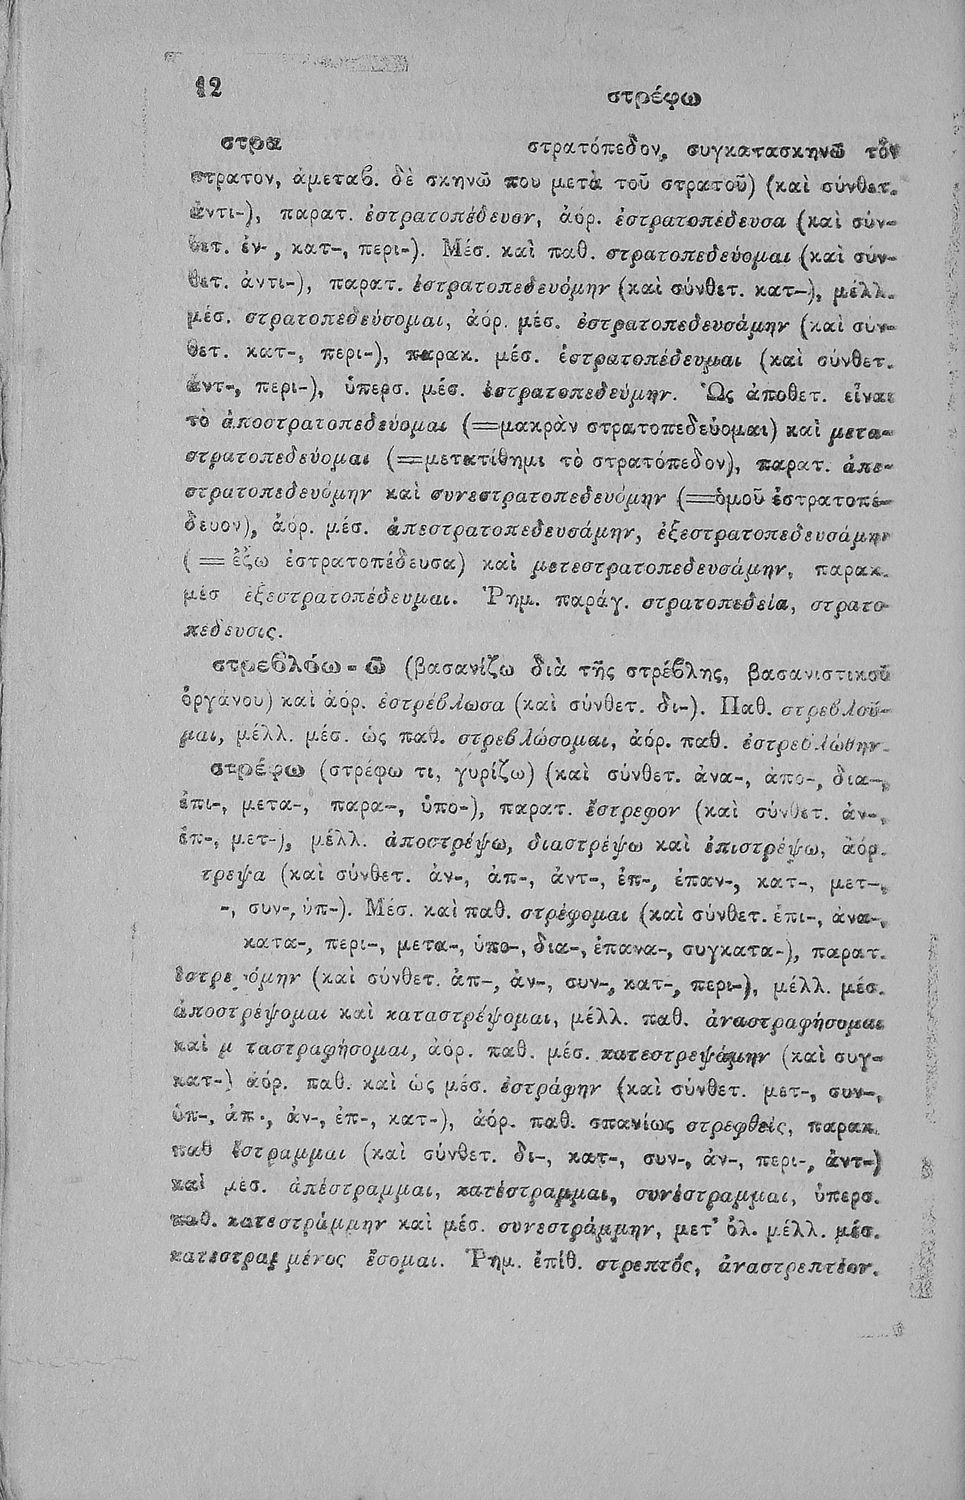 12
στρέφω
στρα στρατόπεδον, συγκατασκηνῶ τὸν
στρατον, ἀμεταβ. δὲ σκηνῶ που μετὰ τοῦ στρατοῦ) (καὶ σύνθετ.
ἀντι-), παρατ. ἐστρατοπέδευον, ἀόρ. ἐστρατοπέδευσα (καὶ σύν-
θετ. ἐν-, κατ-, περι-). Μέσ. καὶ παθ. στρατοπεδεύομαι (καὶ σύν-
θετ. ἀντι-), παρατ. ἐστρατοπεδευόμην (καὶ σύνθετ. κατ-), μέλλ.
μέσ. στρατοπεδεύσομαι, ἀόρ. μέσ. ἐστρατοπεδευσάμην (καὶ σύν-
θετ. κατ-, περι-), παρακ. μέσ. ἐστρατοπέδευμαι (καὶ σύνθετ.
ἀντ-, περι-), ὑπερσ. μέσ. ἐστρατοπεδεύμην. Ὡς ἀποθετ. εἶναι
τὸ ἀποστρατοπεδεύομαι (=μακρὰν στρατοπεδεύομαι) καὶ μετα-
στρατοπεδεύομαι (=μετακτίθημι τὸ στρατόπεδον), παρατ. ἀπε-
στρατοπεδευόμην καὶ συνεστρατοπεδευόμην (=ὁμοῦ ἐστρατοπέ-
δευον), ἀόρ. μέσ. ἀπεστρατοπεδευσάμην, ἐξεστρατοπεδευσάμην
(=ἔξω ἐστρατοπέδευσα) καὶ μετεστρατοπεδευσάμην, παρακ.
μέσ ἐξεστρατοπέδευμαι. Ῥημ. παράγ. στρατοπεδεία, στρατο-
πέδευσις.
στρεβλόω-ῶ (βασανίζω διὰ τῆς στρέβλης, βασανιστικοῦ
ὀργάνου) καὶ ἀόρ. ἐστρέβλωσα (καὶ σύνθετ. δι-). Παθ. στρεβλοῦ-
μαι, μέλλ. μέσ. ὡς παθ. στρεβλώσομαι, ἀόρ. παθ. ἐστρεβλώθην.
στρέφω (στρέφω τι, γυρίζω) (καὶ σύνθετ. ἀνα-, ἀπο-, δια-,
ἐπι-, μετα-, παρα-, ὑπο-), παρατ. ἔστρεφον (καὶ σύνθετ. ἀν-,
ἐπ-, μετ-), μέλλ. ἀποστρέψω, διαστρέψω καὶ ἐπιστρέψω, ἀόρ.
τρεψα (καὶ σύνθετ. ἀν-, ἀπ-, ἀντ-, ἐπ-, ἐπαν-, κατ-, μετ-,
-, συν-, ὑπ-). Μέσ. καὶ παθ. στρέφομαι (καὶ σύνθετ. ἐπι-, ἀνα-,
κατα-, περι-, μετα-, ὑπο-, δια-, ἐπανα-, συγκατα-), παρατ.
ἐστρε όμην (καὶ σύνθετ. ἀπ-, ἀν-, συν-, κατ-, περι-), μέλλ. μέσ.
ἀποστρέψομαι καὶ καταστρέψομαι, μέλλ. παθ. ἀναστραφήσομαι
καὶ μ ταστραφήσομαι, ἀόρ. παθ. μέσ. κατεστρεψάμην (καὶ συγ-
κατ-) ἀόρ. παθ. καὶ ὡς μέσ. ἐστράφην (καὶ σύνθετ. μετ-, συν-,
ὑπ-, ἀπ-, ἀν-, ἐπ-, κατ-), ἀόρ. παθ. σπανίως στρεφθείς, παρακ.
παθ ἔστραμμαι (καὶ σύνθετ. δι-, κατ-, συν-, ἀν-, περι-, ἀντ-)
καὶ μέσ. ἀπέστραμμαι, κατέστραμμαι, συνέστραμμαι, ὑπερσ.
παθ. κατεστράμμην καὶ μέσ. συνεστράμμην, μετ' ὀλ. μέλλ. μέσ.
κατεστραμμένος ἔσομαι. Ῥημ. ἐπίθ. στρεπτός, ἀναστρεπτέον.